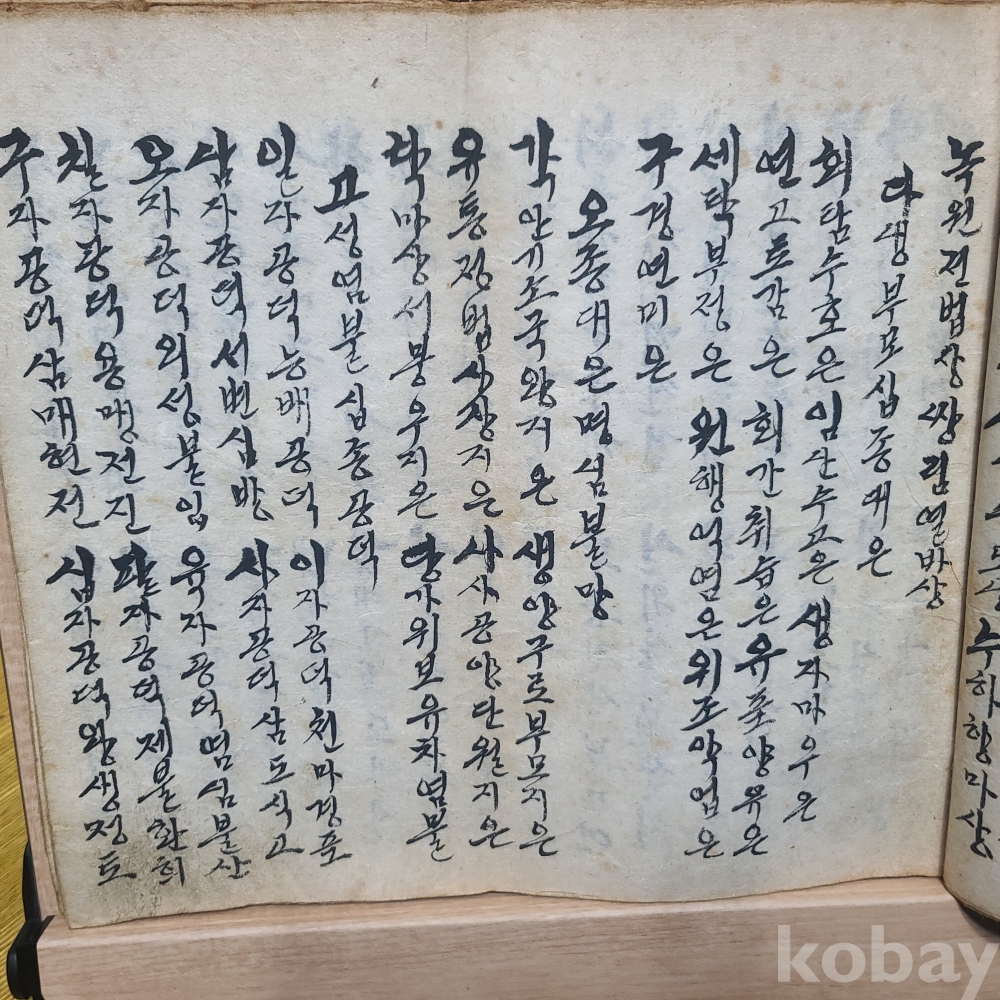 수하항마상
녹원전법상 쌍림열바상
다생부모십종대은
회탐수호은 임산수고은 생자마우은
연고토감은 회간취습은 유포양유은
세탁부정은 원행억염은 위조악업은
구경연미은
오종대은명심불망
각안기소국왕지은 생양구로부모지은
유통정법사장지은 사사공양단월지은
탁마상서붕우지은 당가위보유차염불
고성염불십종공덕
일자공덕능배공덕 이자공덕천마경포
삼자공덕서변십방 사자공덕삼도식고
오자공덕외성불입 육자공덕염심불산
칠자공덕용맹전진 팔자공덕제불환희
구자공덕삼매현전 십자공덕왕생정토
kobay